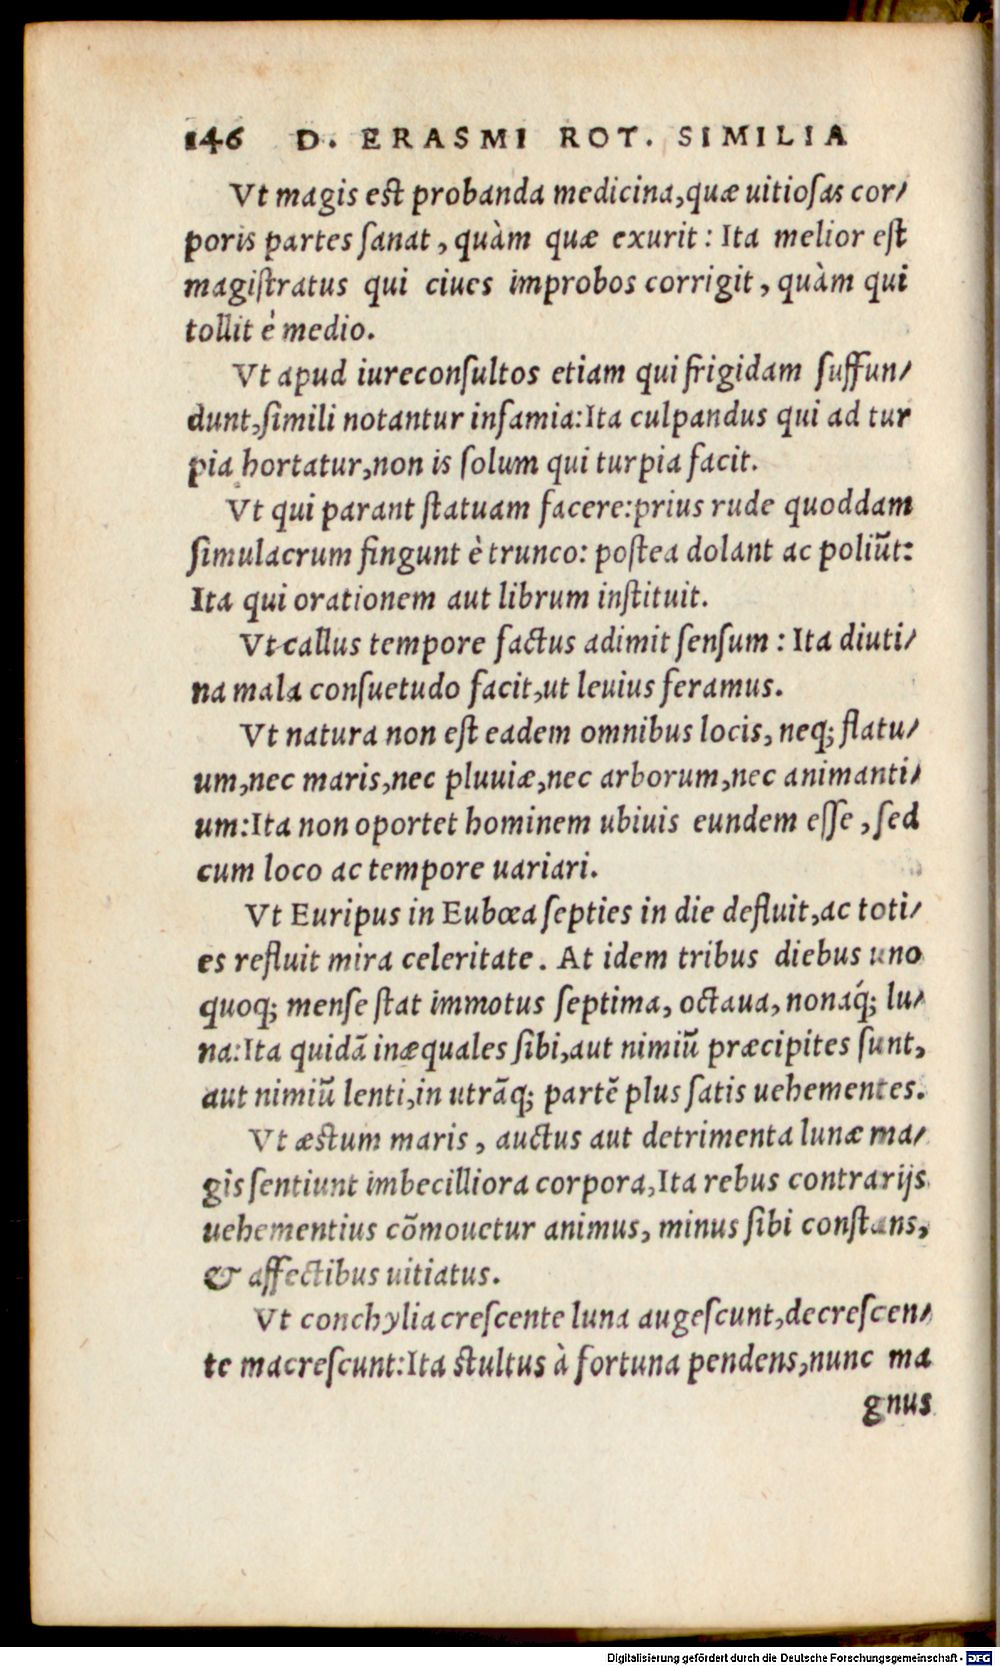 146 D. ERASMI ROT. SIMILIA
Vt magis est probanda medicina,quæ uitiosas cor/
poris partes sanat, quàm quæ exurit: Ita melior est
magistratus qui ciues improbos corrigit, quàm qui
tollit è medio.
Vt apud iureconsultos etiam qui frigidam suffun/
dunt,simili notantur infamia:Ita culpandus qui ad tur
pia hortatur,non is solum qui turpia facit.
Vt qui parant statuam facere:prius rude quoddam
simulacrum fingunt è trunco: postea dolant ac poliūt:
Ita qui orationem aut librum instituit.
Vt callus tempore factus adimit sensum: Ita diuti/
na mala consuetudo facit,ut leuius feramus.
Vt natura non est eadem omnibus locis, neq; flatu/
um,nec maris,nec pluuiæ,nec arborum,nec animanti/
um:Ita non oportet hominem ubiuis eundem esse, sed
cum loco ac tempore uariari.
Vt Euripus in Eubœa septies in die defluit,ac toti/
es refluit mira celeritate. At idem tribus diebus uno
quoq; mense stat immotus septima, octaua, nonaq́; lu/
na:Ita quidā inæquales sibi,aut nimiū præcipites sunt,
aut nimiū lenti,in utrāq; partē plus satis uehementes.
Vt æstum maris, auctus aut detrimenta lunæ ma/
gis sentiunt imbecilliora corpora,Ita rebus contrarijs
uehementius cōmouetur animus, minus sibi constans,
& affectibus uitiatus.
Vt conchylia crescente luna augescunt,decrescen/
te macrescunt:Ita stultus à fortuna pendens,nunc ma
gnus
Digitalisierung gefördert durch die Deutsche Forschungsgemeinschaft - DFG